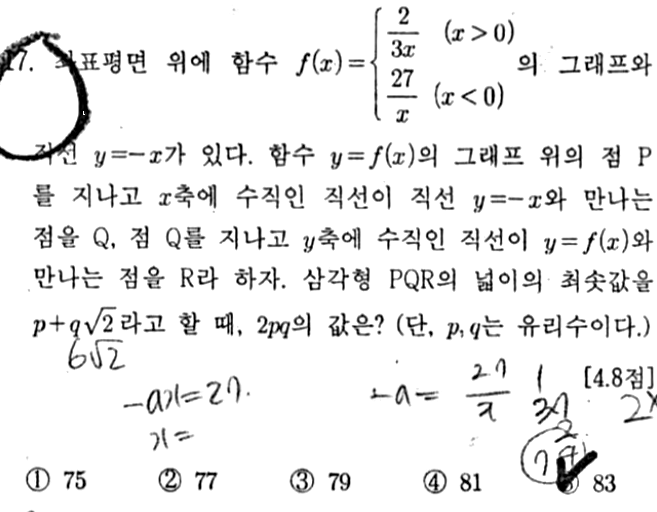 17. 좌표평면 위에 함수 f(x)={ 2/3x (x>0) 27/x (x<0) 의 그래프와
직선 y=-x가 있다. 함수 y=f(x)의 그래프 위의 점 P
를 지나고 x축에 수직인 직선이 직선 y=-x와 만나는
점을 Q, 점 Q를 지나고 y축에 수직인 직선이 y=f(x)와
만나는 점을 R라 하자. 삼각형 PQR의 넓이의 최솟값을
p+q√2라고 할 때, 2pq의 값은? (단, p, q는 유리수이다.)
6√2
[4.8점]
-ax=27.
-a= 27/x
x=
① 75 ② 77 ③ 79 ④ 81 ⑤ 83